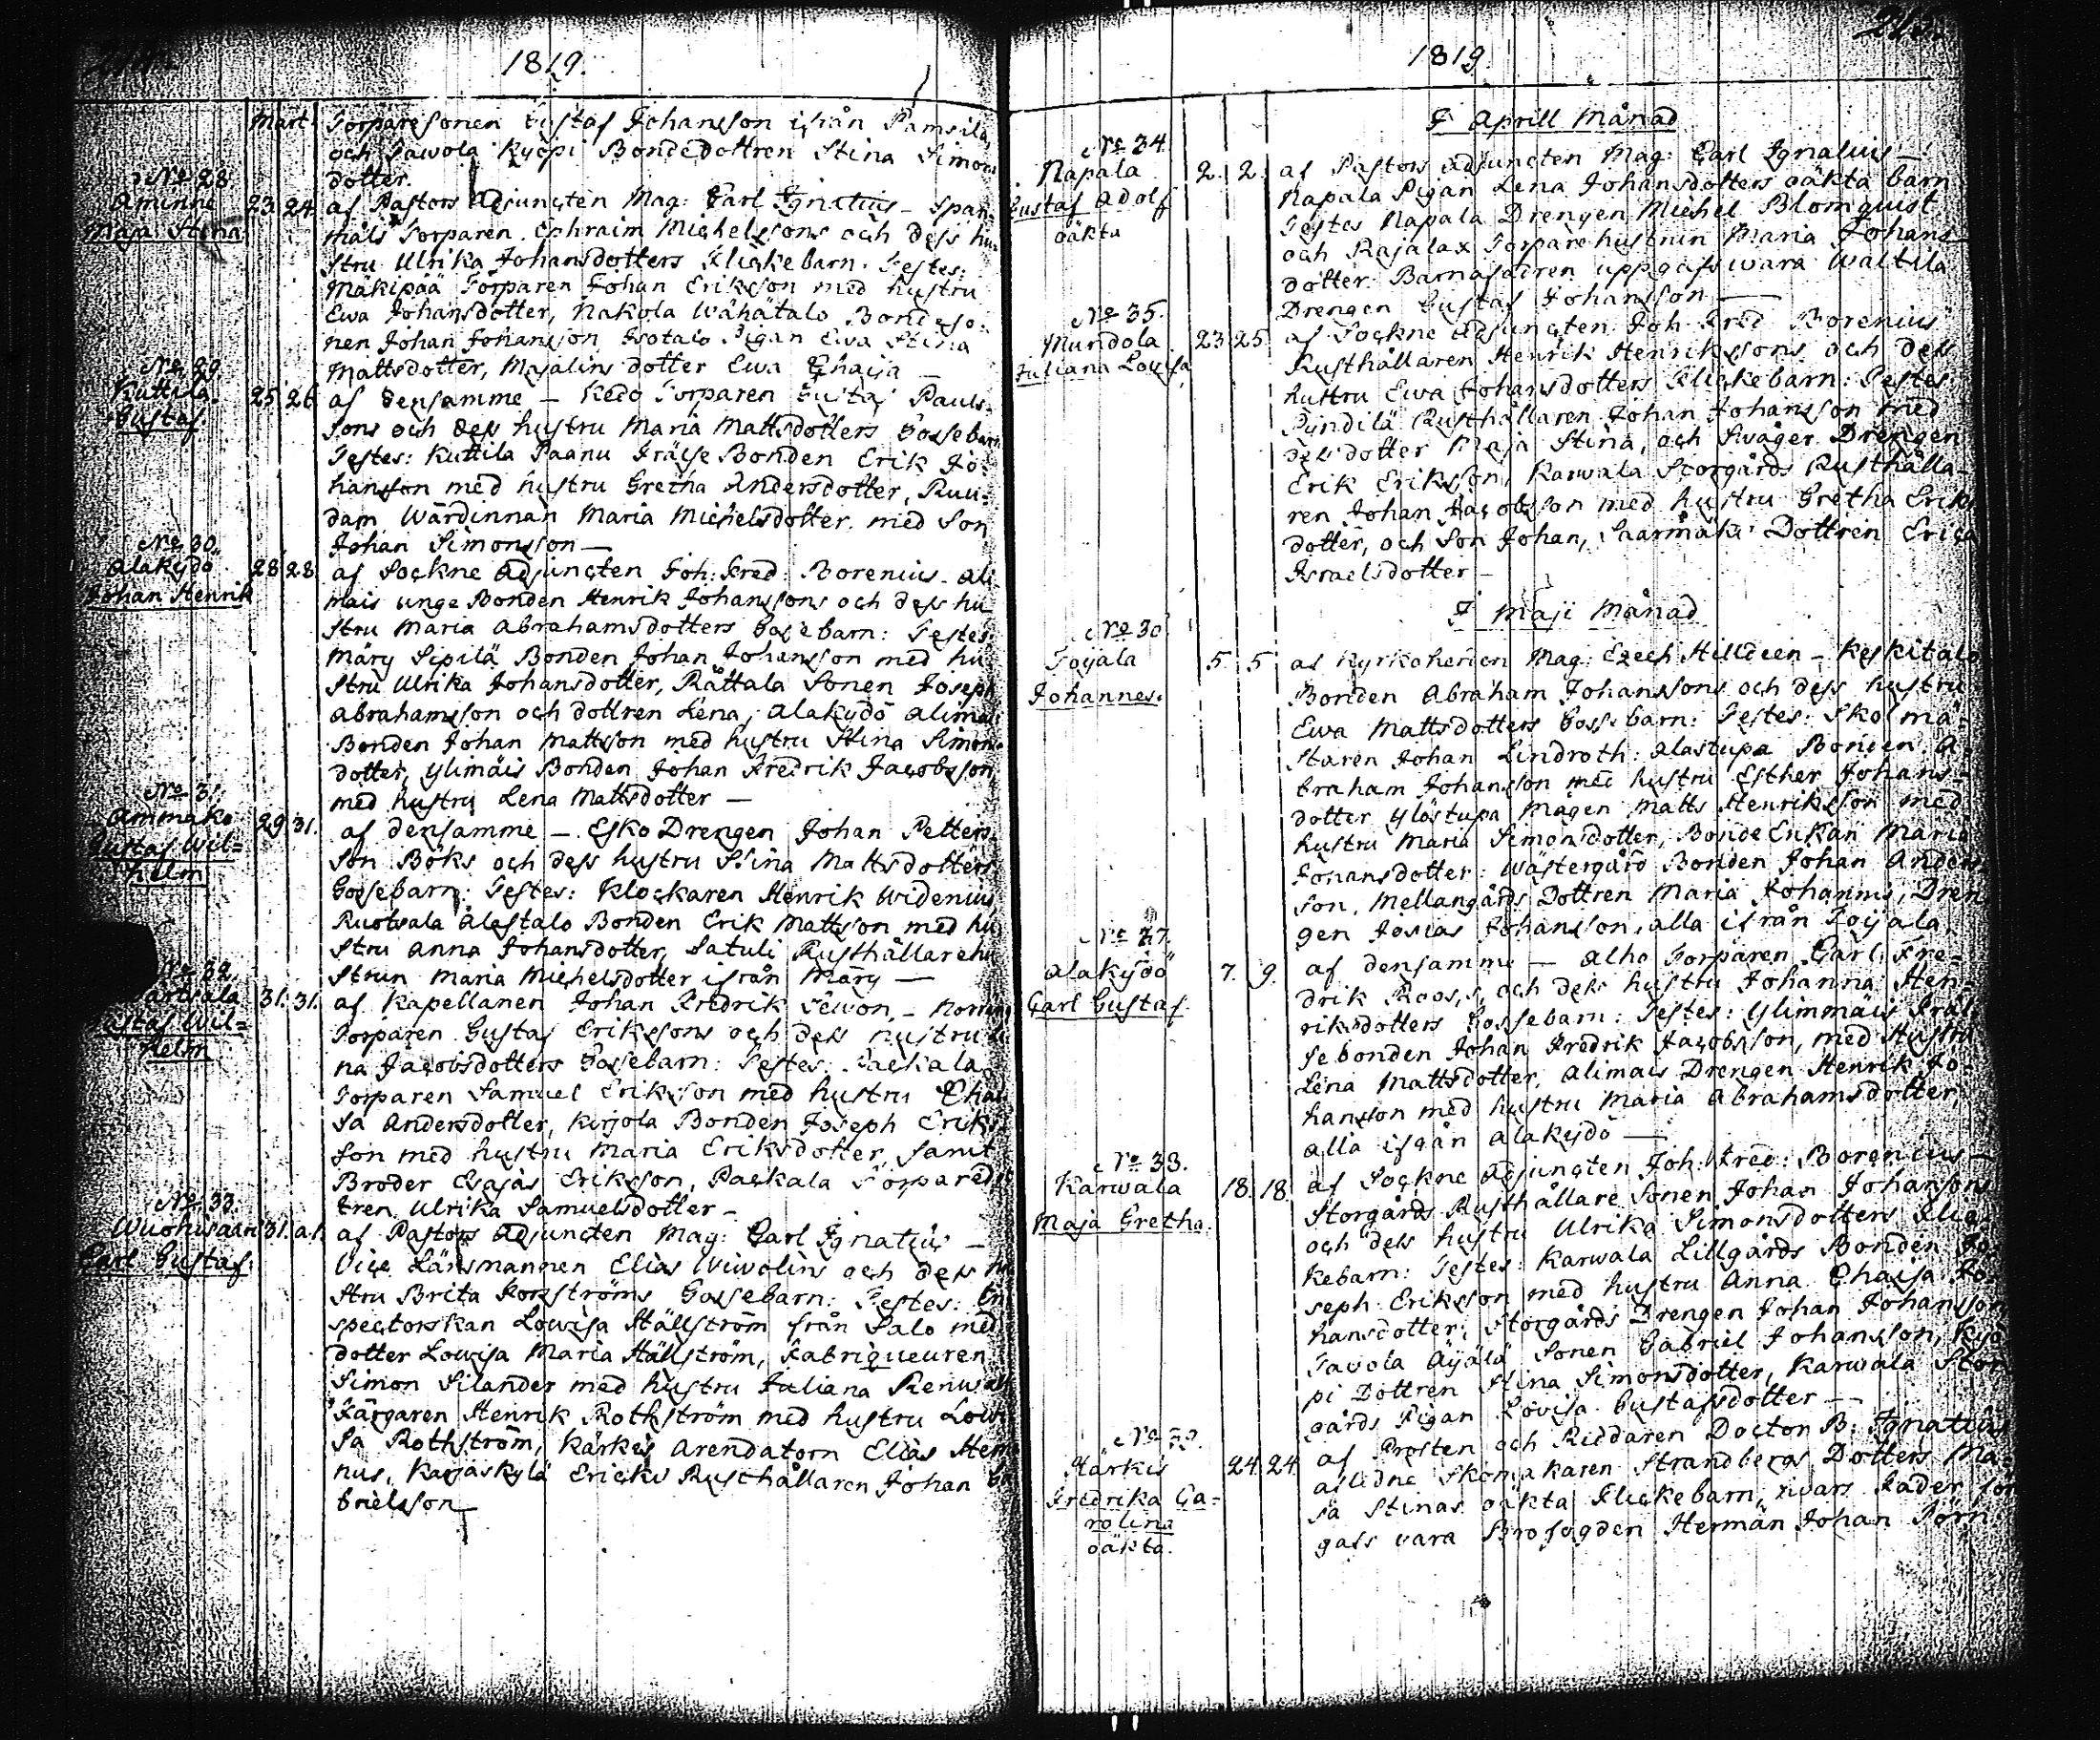 1819.
Mart.
Torparesonen Gustaf Johansson ifrån Pamsila,
och Sawola Kyöpi Bondedottren Stina Simons
dotter.
No 28.
Aminne 23. 24.
Maja Stina
af Pastors Adjuncten Mag: Carl Ignatius – Span-
mäls Torparen Ephraim Michelssons och dess hu-
stru Ulrika Johansdotters Flickebarn. Testes:
Mäkipää Torparen Johan Eriksson med hustru
Ewa Johansdotter, Nakola Wähätalo Bondeso-
nen Johan Johansson Isotalo Pigan Ewa Stina
Mattsdotter, Majalins dotter Ewa Chaisa –
No 29.
Kuttila. 25. 26
Gustaf.
af densamme – Kedo Torparen Gustaf Pauls-
sons och dess hustru Maria Mattsdotters Gossebarn
Testes: Kuttila Paanu Frälse Bonden Erik Jo-
hansson med hustru Gretha Andersdotter, Ruu-
dam Wärdinnan Maria Michelsdotter med Son
Johan Simonsson –
No 30.
Alakydö 28 28.
Johan Henrik
af Sockne Adjuncten Joh: Fred: Borenius – Ali-
mais unge Bonden Henrik Johanssons och dess hu
stru Maria Abrahamsdotters Gossebarn: Testes:
Märy Sipilä Bonden Johan Johansson med hu
stru Ulrika Johansdotter, Rättala Sonen Joseph
Abrahamsson och dottren Lena, Alakydö Alimais
Bonden Johan Mattsson med hustru Stina Simons-
dotter, Ylimäis Bonden Johan Fredrik Jacobsson,
med hustru Lena Mattsdotter –
No 31.
Ammako 29 31.
Gustaf Wil=
helm
af densamme – Esko Drengen Johan Petters-
son Böks och dess hustru Stina Mattsdotters
Gossebarn: Testes: Klockaren Henrik Widenius,
Ruotsala Alastalo Bonden Erik Mattsson med hu
stru Anna Johansdotter, Satuli Rusthållarehu
strun Maria Michelsdotter ifrån Märy –
No 32.
31. 31.
Wil=
helm
af Kapellanen Johan Fredrik Sewon, –
Torparen Gustaf Erikssons och dess hustru
na Jacobsdotters Gossebarn: Testes: Packala
Torparen Samuel Eriksson med hustru Chai
sa Andersdotter, Kirjola Bonden Joseph Eriks
son med hustru Maria Eriksdotter, samt
Broder Esajas Eriksson, Packala Torparedot
tren Ulrika Samuelsdotter –
No 33.
Wuohisaari 31. a1.
Carl Gustaf.
af Pastors Adjuncten Mag: Carl Ignatius –
Vice Länsmannen Elias Wiwolins och dess hu
stru Brita Forsströms Gossebarn: Testes: In
spectorskan Lowisa Hällström från Salo med
dotter Lowisa Maria Hällström, Fabriqueuren
Simon Silander med hustru Juliana Renwall
Färgaren Henrik Rothström med hustru Lowi
sa Rothström, Kärkis Arendatorn Elias Hem
nus, Karjaskylä Ericks Rusthållaren Johan Ga
brielsson
1819.
I Aprill Månad
No 34.
Napala 2. 2.
Gustaf Adolf
oäkta
af Pastors Adjuncten Mag: Carl Ignatius –
Napala Pigan Lena Johansdotters oäkta barn
Testes Napala Drengen Michel Blomquist
och Rajalax Torpare hustrun Maria Johans
dotter. Barnafadren uppgafs wara Waltila
Drengen Gustaf Johansson –
No 35.
Mundola 23 25
Juliana Lovisa
af Sockne Adjuncten Joh: Fred Borenius
Rusthållaren Henrik Henrikssons och dess
hustru Ewa Johansdotters Flickebarn: Testes
Pyndilä Rusthållaren Johan Johansson med
dess dotter Maja Stina, och Swåger Drengen
Erik Eriksson, Karwala Storgårds Rusthålla-
ren Johan Jacobsson med hustru Gretha Eriks
dotter, och Son Johan, Saarmäki Dottren Erica
Israelsdotter –
I Maji Månad
No 30
Toijala 5. 5
Johannes.
af Kyrkoherden Mag: Ezech Hilldeen – Keskitalo
Bonden Abraham Johanssons och dess hustru
Ewa Mattsdotters Gossebarn: Testes: Skolmä-
staren Johan Lindroth: Alastupa Bonden A-
braham Johansson med hustru Esther Johans-
dotter Ylöstupa Mågen Matts Henriksson med
hustru Maria Simonsdotter, Bonde Enkan Maria
Johansdotter: Wästergård Bonden Johan Anders
son, Mellangårds Dottren Maria Johanns, Dren
gen Josias Johansson, alla ifrån Toijala
No 27.
Alakydö 7. 9.
Carl Gustaf.
af densamme – Alho Torparen Carl Fre-
drik Rooss, och dess hustru Johanna Hen-
riksdotters Gossebarn: Testes: Ylimmäis Fräl-
sebonden Johan Fredrik Jacobsson, med Hustru
Lena Mattsdotter, Alimais Drengen Henrik Jo-
hansson med hustru Maria Abrahamsdotter,
alla ifrån Alakydö –
No 33.
Karwala 18. 18.
Maja Gretha.
af Sockne Adjuncten Joh: Fred: Borenius –
Storgårds Rusthållare Sonen Johan Johanssons
och dess hustru Ulrika Simonsdotters Flic-
kebarn: Testes: Karwala Lillgårds Bonden Jo-
seph Eriksson med hustru Anna Chaisa Jo-
hansdotter; Storgårds Drengen Johan Johansson
Sawola Äijälä Sonen Gabriel Johansson, Kyö
pi Dottren Stina Simonsdotter, Karwala Stor
gårds Pigan Lovisa Gustafsdotter –
No 39.
Härkis 24. 24.
Fredrika Ca=
rolina
oäkta.
af Prosten och Riddaren Doctor B: Ignatius
aflidne Skomakaren Strandbergs Dotters Ma-
ja Stinas oäkta Flickebarn, hwars Fader för
gafs vara Brofogden Herman Johan Törn